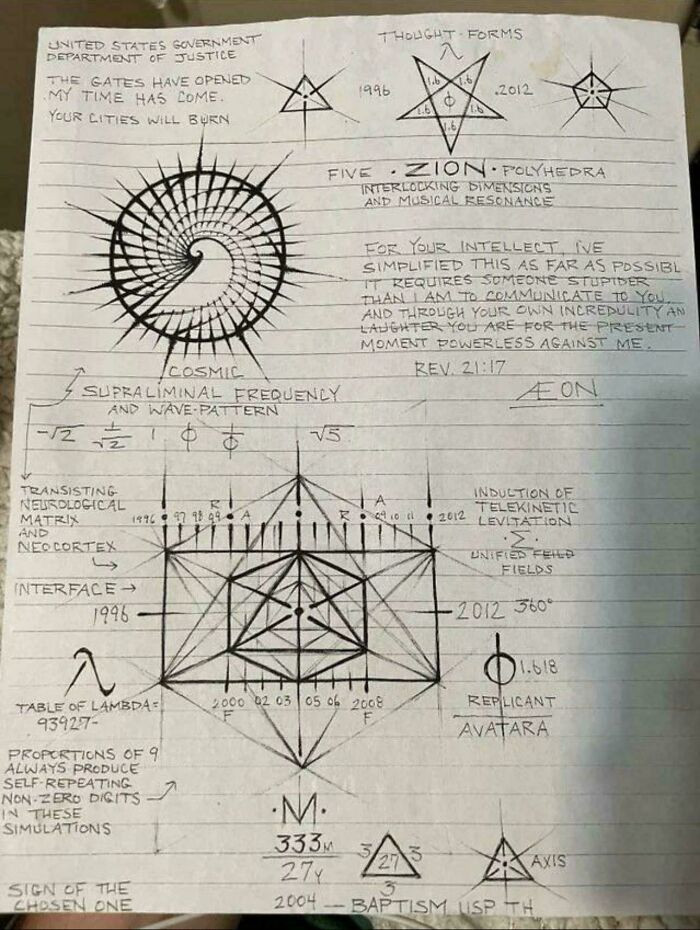 UNITED STATES GOVERNMENT
DEPARTMENT OF JUSTICE
THE GATES HAVE OPENED
MY TIME HAS COME.
YOUR CITIES WILL BURN
THOUGHT-FORMS
λ
1996
1.6 1.6
1.6 ϕ 1.6
1.6
.2012
FIVE · ZION · POLYHEDRA
INTERLOCKING DIMENSIONS
AND MUSICAL RESONANCE
FOR YOUR INTELLECT, I'VE
SIMPLIFIED THIS AS FAR AS POSSIBL
IT REQUIRES SOMEONE STUPIDER
THAN I AM TO COMMUNICATE TO YOU.
AND THROUGH YOUR OWN INCREDULITY AN
LAUGHTER YOU ARE FOR THE PRESENT
MOMENT POWERLESS AGAINST ME.
REV. 21:17
ÆON
COSMIC
SUPRALIMINAL FREQUENCY
AND WAVE-PATTERN
-√2 1/√2 1 ϕ 1/ϕ √5
TRANSISTING
NEUROLOGICAL
MATRIX
AND
NEOCORTEX
INTERFACE →
1996 97 98 99 R A
A R 09 10 11 2012
INDUCTION OF
TELEKINETIC
LEVITATION
·Σ·
UNIFIED FEILD
FIELDS
1996
2012 360°
λ
TABLE OF LAMBDA=
93927-
2000 02 03 05 06 2008
F F
ϕ 1.618
REPLICANT
AVATARA
PROPORTIONS OF 9
ALWAYS PRODUCE
SELF-REPEATING
NON-ZERO DIGITS
IN THESE
SIMULATIONS
·M·
333M
27Y
3 27 3
3
AXIS
SIGN OF THE
CHOSEN ONE
2004 — BAPTISM USP TH